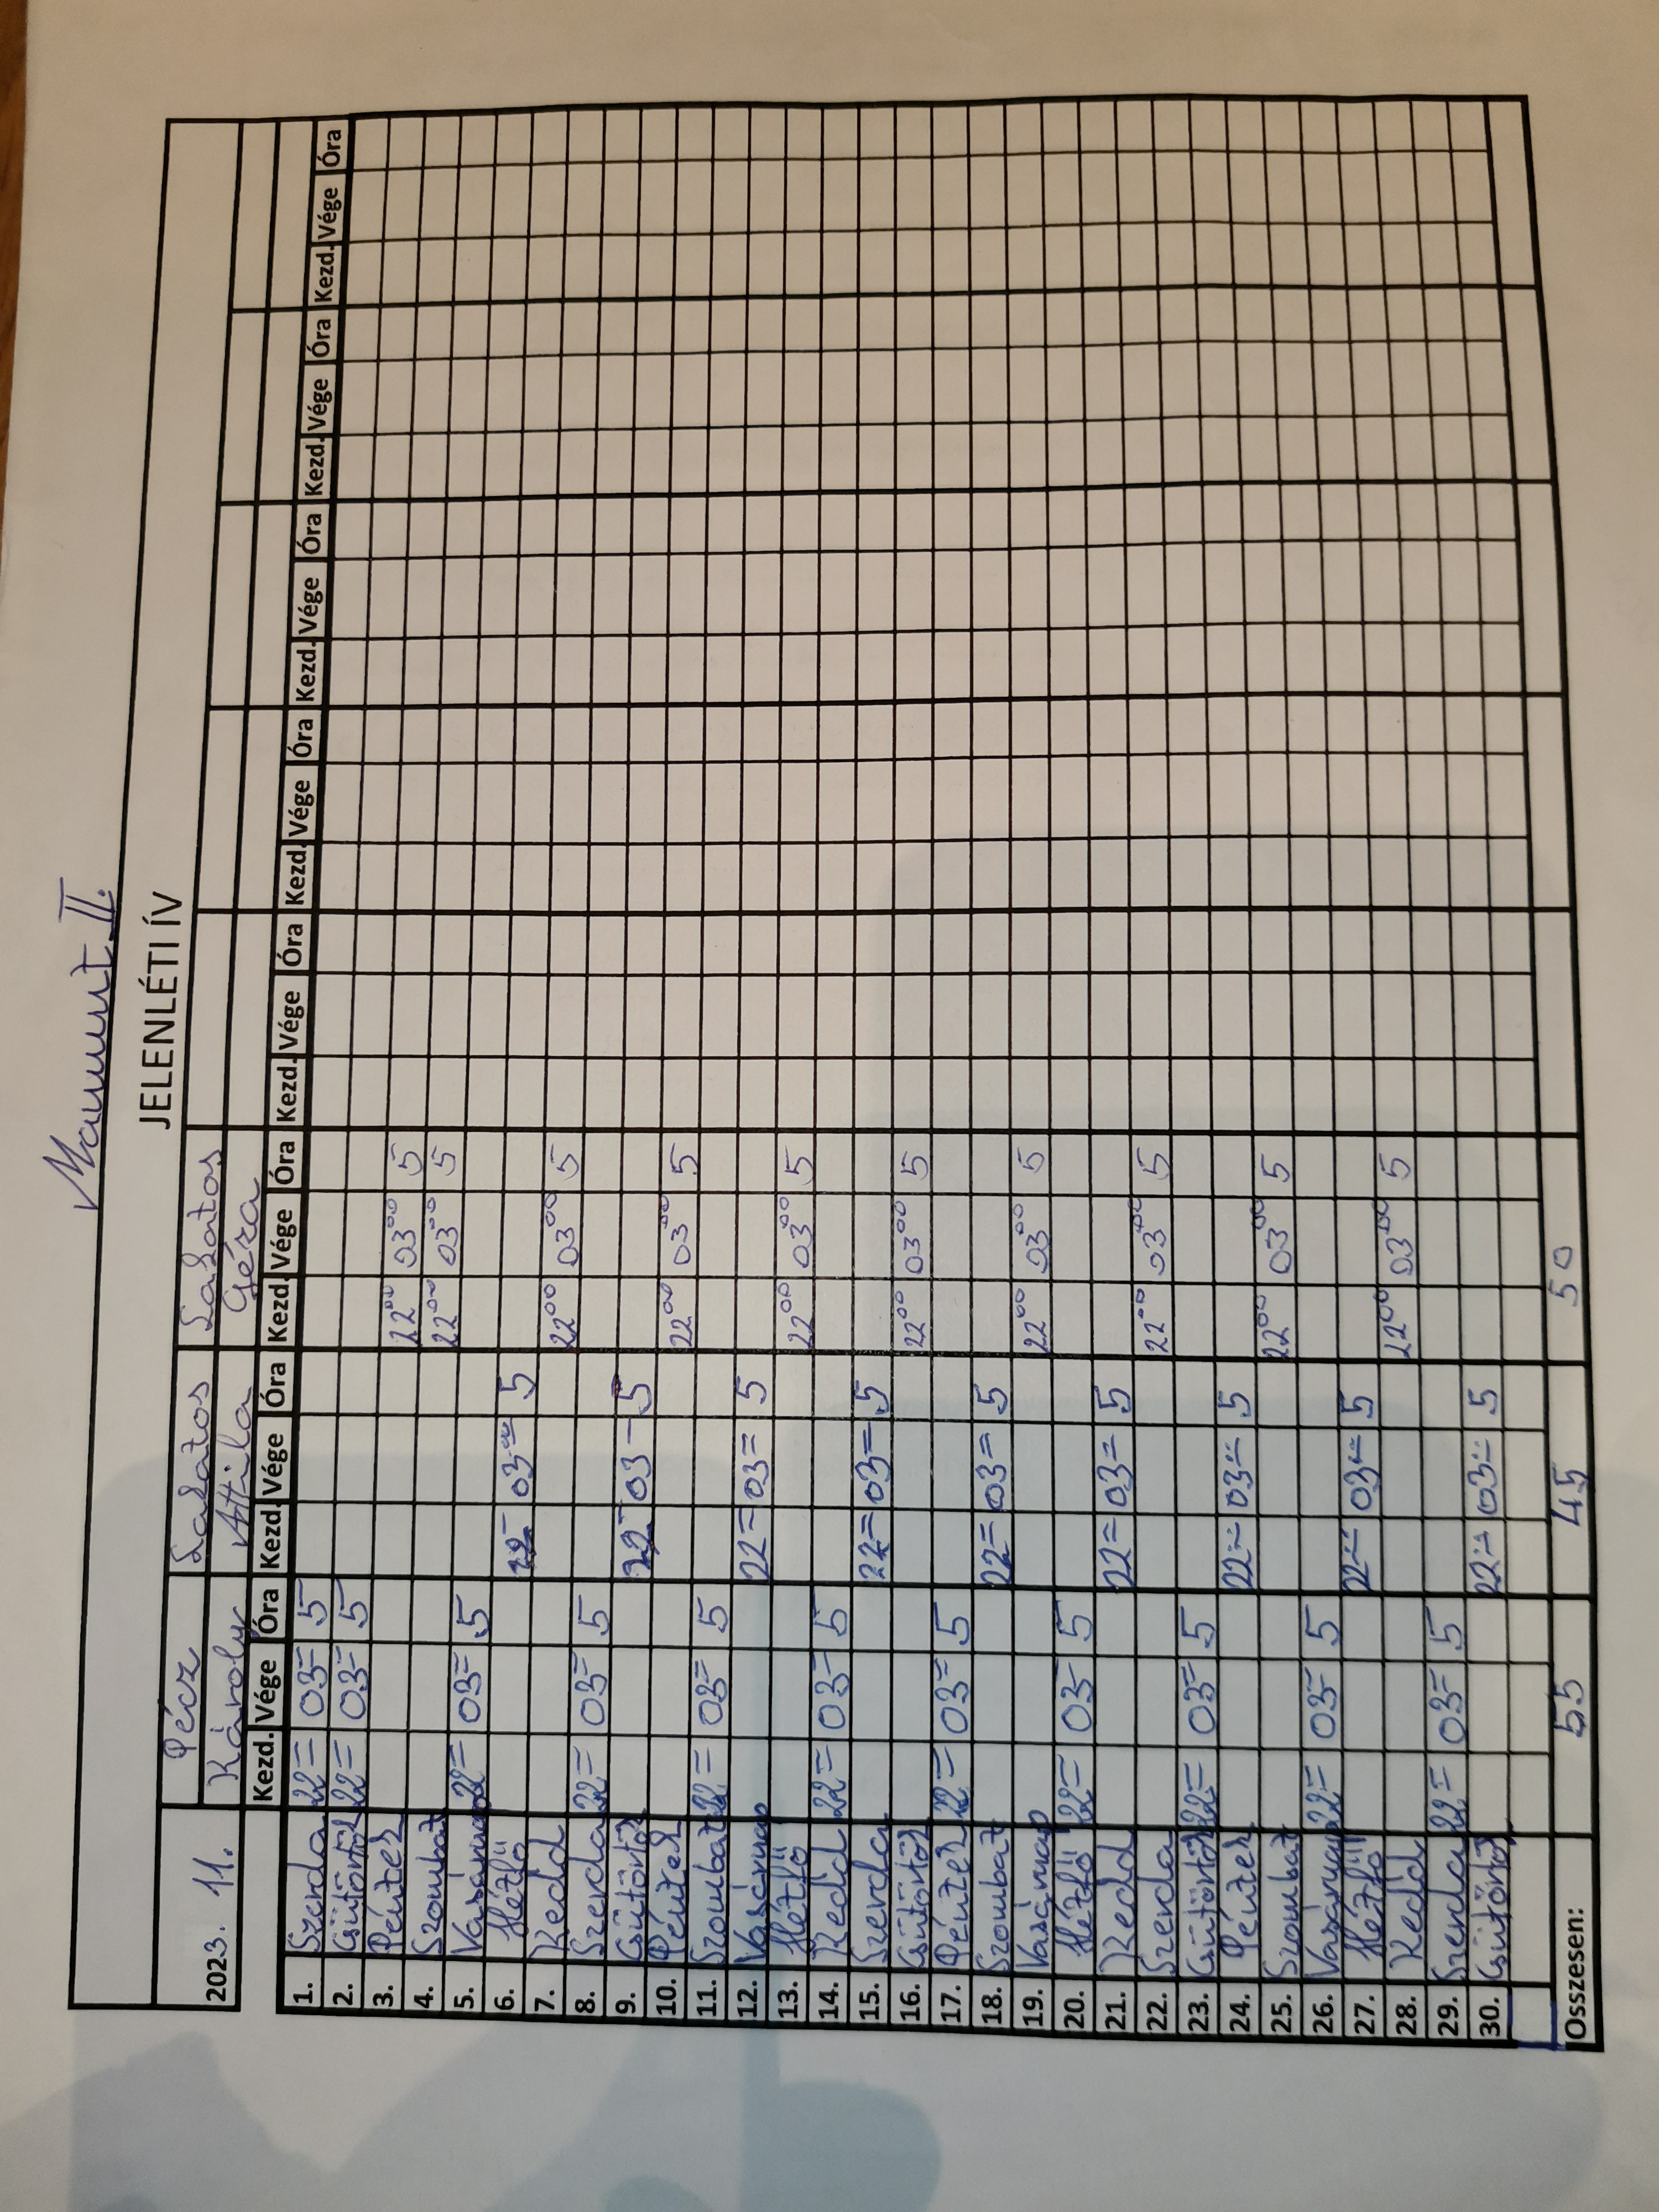 Mamut II.
JELENLÉTI ÍV
2023. 11. Pécz Károly Lakatos Attila Lakatos Géza
Kezd. Vége Óra Kezd. Vége Óra Kezd. Vége Óra Kezd. Vége Óra Kezd. Vége Óra Kezd. Vége Óra Kezd. Vége Óra Kezd. Vége Óra
1. Szerda 22= 03= 5
2. Csütörtök 22= 03= 5
3. Péntek 22⁰⁰ 03⁰⁰ 5
4. Szombat 22⁰⁰ 03⁰⁰ 5
5. Vasárnap 22= 03= 5
6. Hétfő 22= 03= 5
7. Kedd 22⁰⁰ 03⁰⁰ 5
8. Szerda 22= 03= 5
9. Csütörtök 22= 03= 5
10. Péntek 22⁰⁰ 03⁰⁰ 5
11. Szombat 22= 03= 5
12. Vasárnap 22= 03= 5
13. Hétfő 22⁰⁰ 03⁰⁰ 5
14. Kedd 22= 03= 5
15. Szerda 22= 03= 5
16. Csütörtök 22⁰⁰ 03⁰⁰ 5
17. Péntek 22= 03= 5
18. Szombat 22= 03= 5
19. Vasárnap 22⁰⁰ 03⁰⁰ 5
20. Hétfő 22= 03= 5
21. Kedd 22= 03= 5
22. Szerda 22⁰⁰ 03⁰⁰ 5
23. Csütörtök 22= 03= 5
24. Péntek 22= 03= 5
25. Szombat 22⁰⁰ 03⁰⁰ 5
26. Vasárnap 22= 03= 5
27. Hétfő 22= 03= 5
28. Kedd 22⁰⁰ 03⁰⁰ 5
29. Szerda 22= 03= 5
30. Csütörtök 22= 03= 5
Összesen: 55 45 50